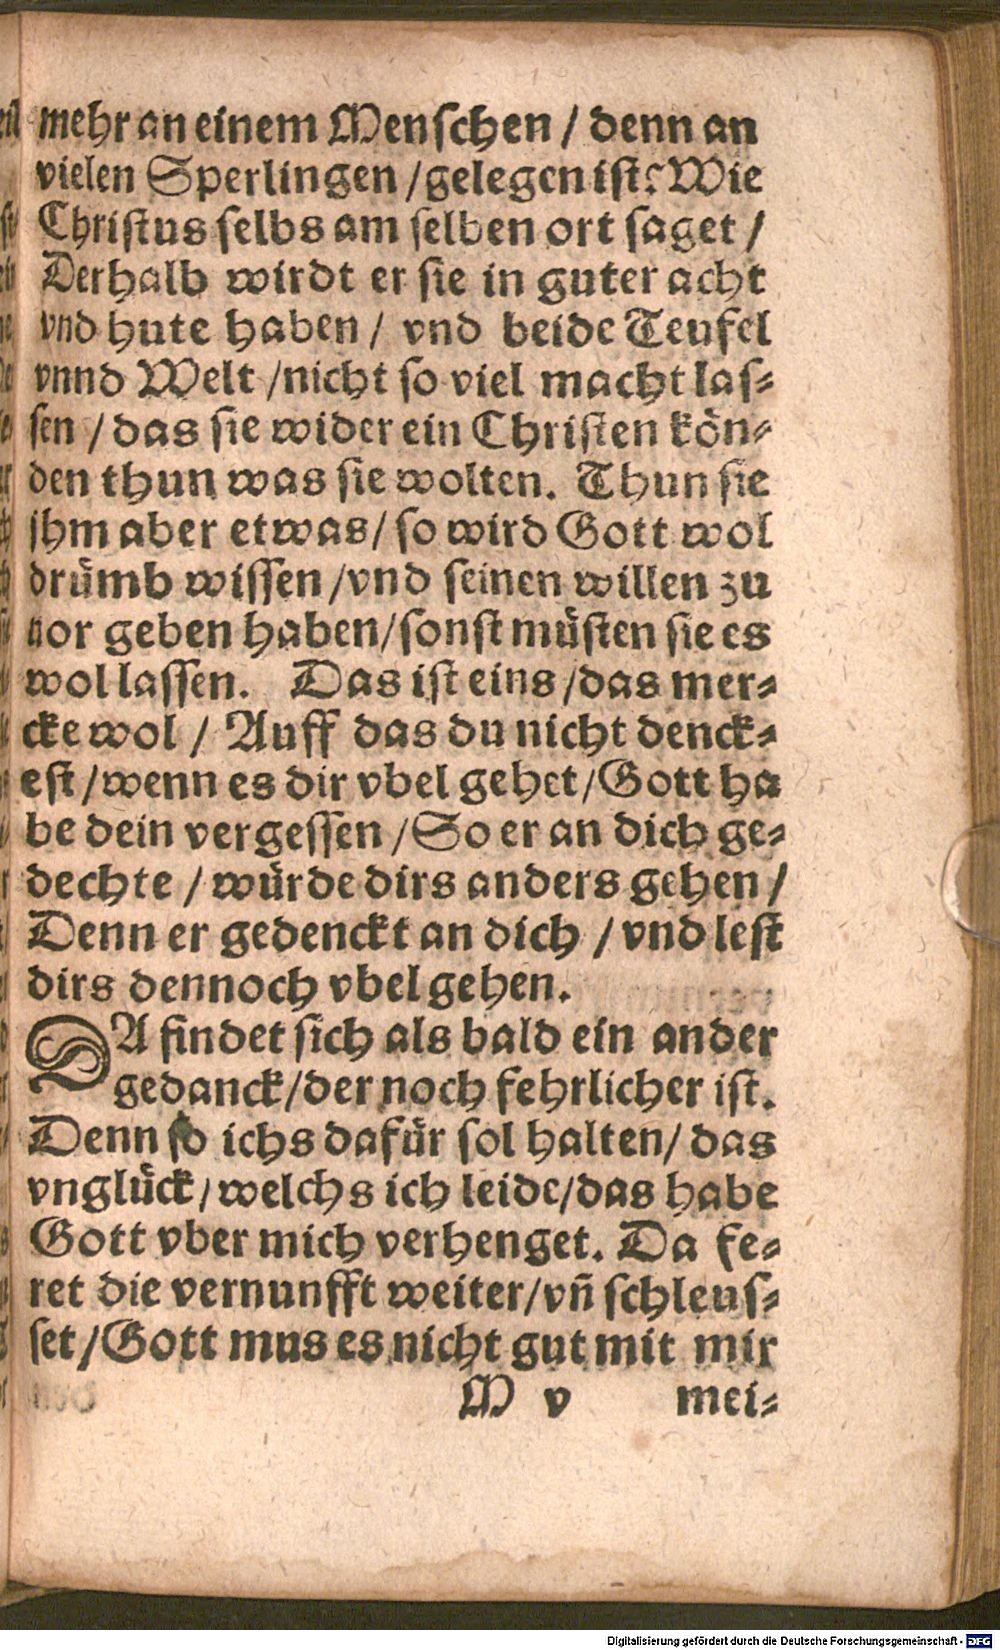 mehr an einem Menschen / denn an
vielen Sperlingen / gelegen ist? Wie
Christus selbs am selben ort saget /
Derhalb wirdt er sie in guter acht
vnd hute haben / vnd beide Teufel
vnnd Welt / nicht so viel macht las-
sen / das sie wider ein Christen kön-
den thun was sie wolten. Thun sie
jhm aber etwas / so wird Gott wol
drümb wissen / vnd seinen willen zu
uor geben haben / sonst müsten sie es
wol lassen. Das ist eins / das mer-
cke wol / Auff das du nicht denck-
est / wenn es dir vbel gehet / Gott ha
be dein vergessen / So er an dich ge-
dechte / würde dirs anders gehen /
Denn er gedenckt an dich / vnd lest
dirs dennoch vbel gehen.
DA findet sich als bald ein ander
gedanck / der noch fehrlicher ist.
Denn so ichs dafür sol halten / das
vnglück / welchs ich leide / das habe
Gott vber mich verhenget. Da fe-
ret die vernunfft weiter / vñ schleus-
set / Gott mus es nicht gut mit mir
M v mei-
Digitalisierung gefördert durch die Deutsche Forschungsgemeinschaft - DFG